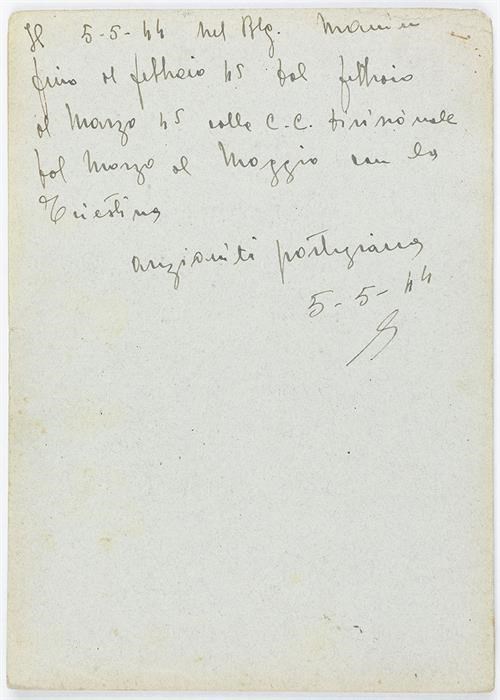 Il 5-5-44 nel Btg. Manin
fino al febbraio 45 dal febbraio
al Marzo 45 colla C.C. divisionale
dal Marzo al Maggio con la
Triestina
anzianità partigiana
5-5-44